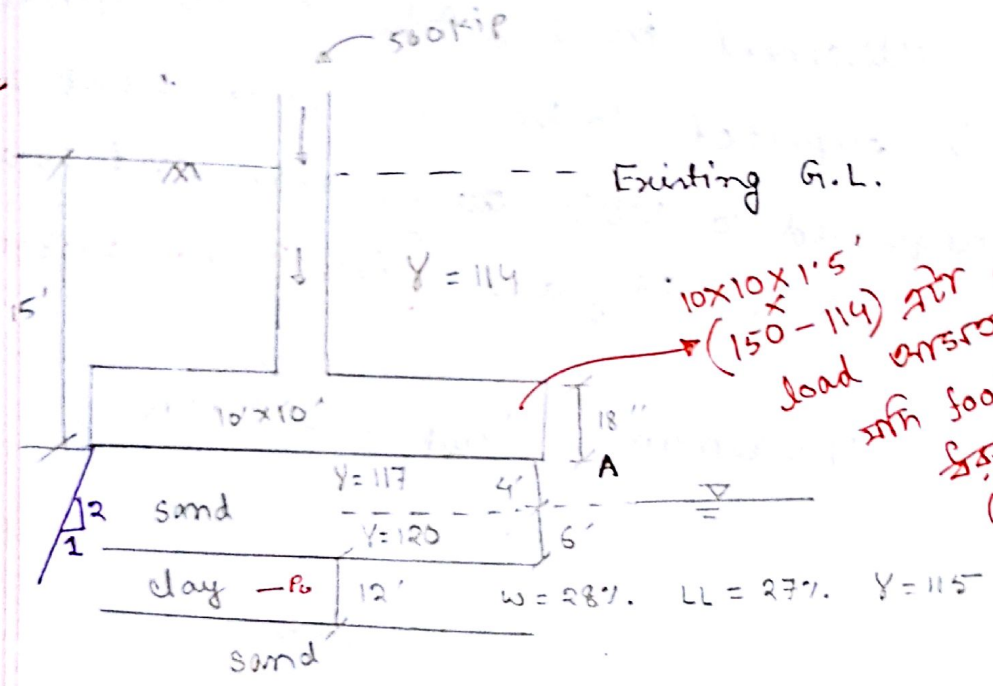 500 kip
Existing G.L.
γ = 114
5'
10×10×1.5'
×
(150-114) এটা
load
10'×10'
18"
A
γ = 117
4'
2
1
sand
γ = 120
6'
clay
P₀
12'
w = 28%. LL = 27%. γ = 115
sand